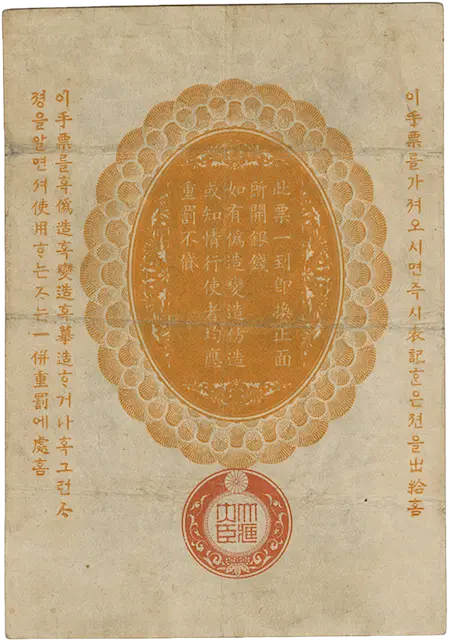 이手票를가져오시면즉시表記ᄒᆞᆫ은젼을出給홈
此票一到卽換正面
所開銀錢
如有僞造變造仿造
或知情行使者均應
重罰不貸
이手票를혹僞造혹變造혹摹造ᄒᆞ거나혹그런ᄉᆞ
졍을알면셔使用ᄒᆞᄂᆞᆫᄌᆞᄂᆞᆫ一併重罰에處홈
大藏
大臣